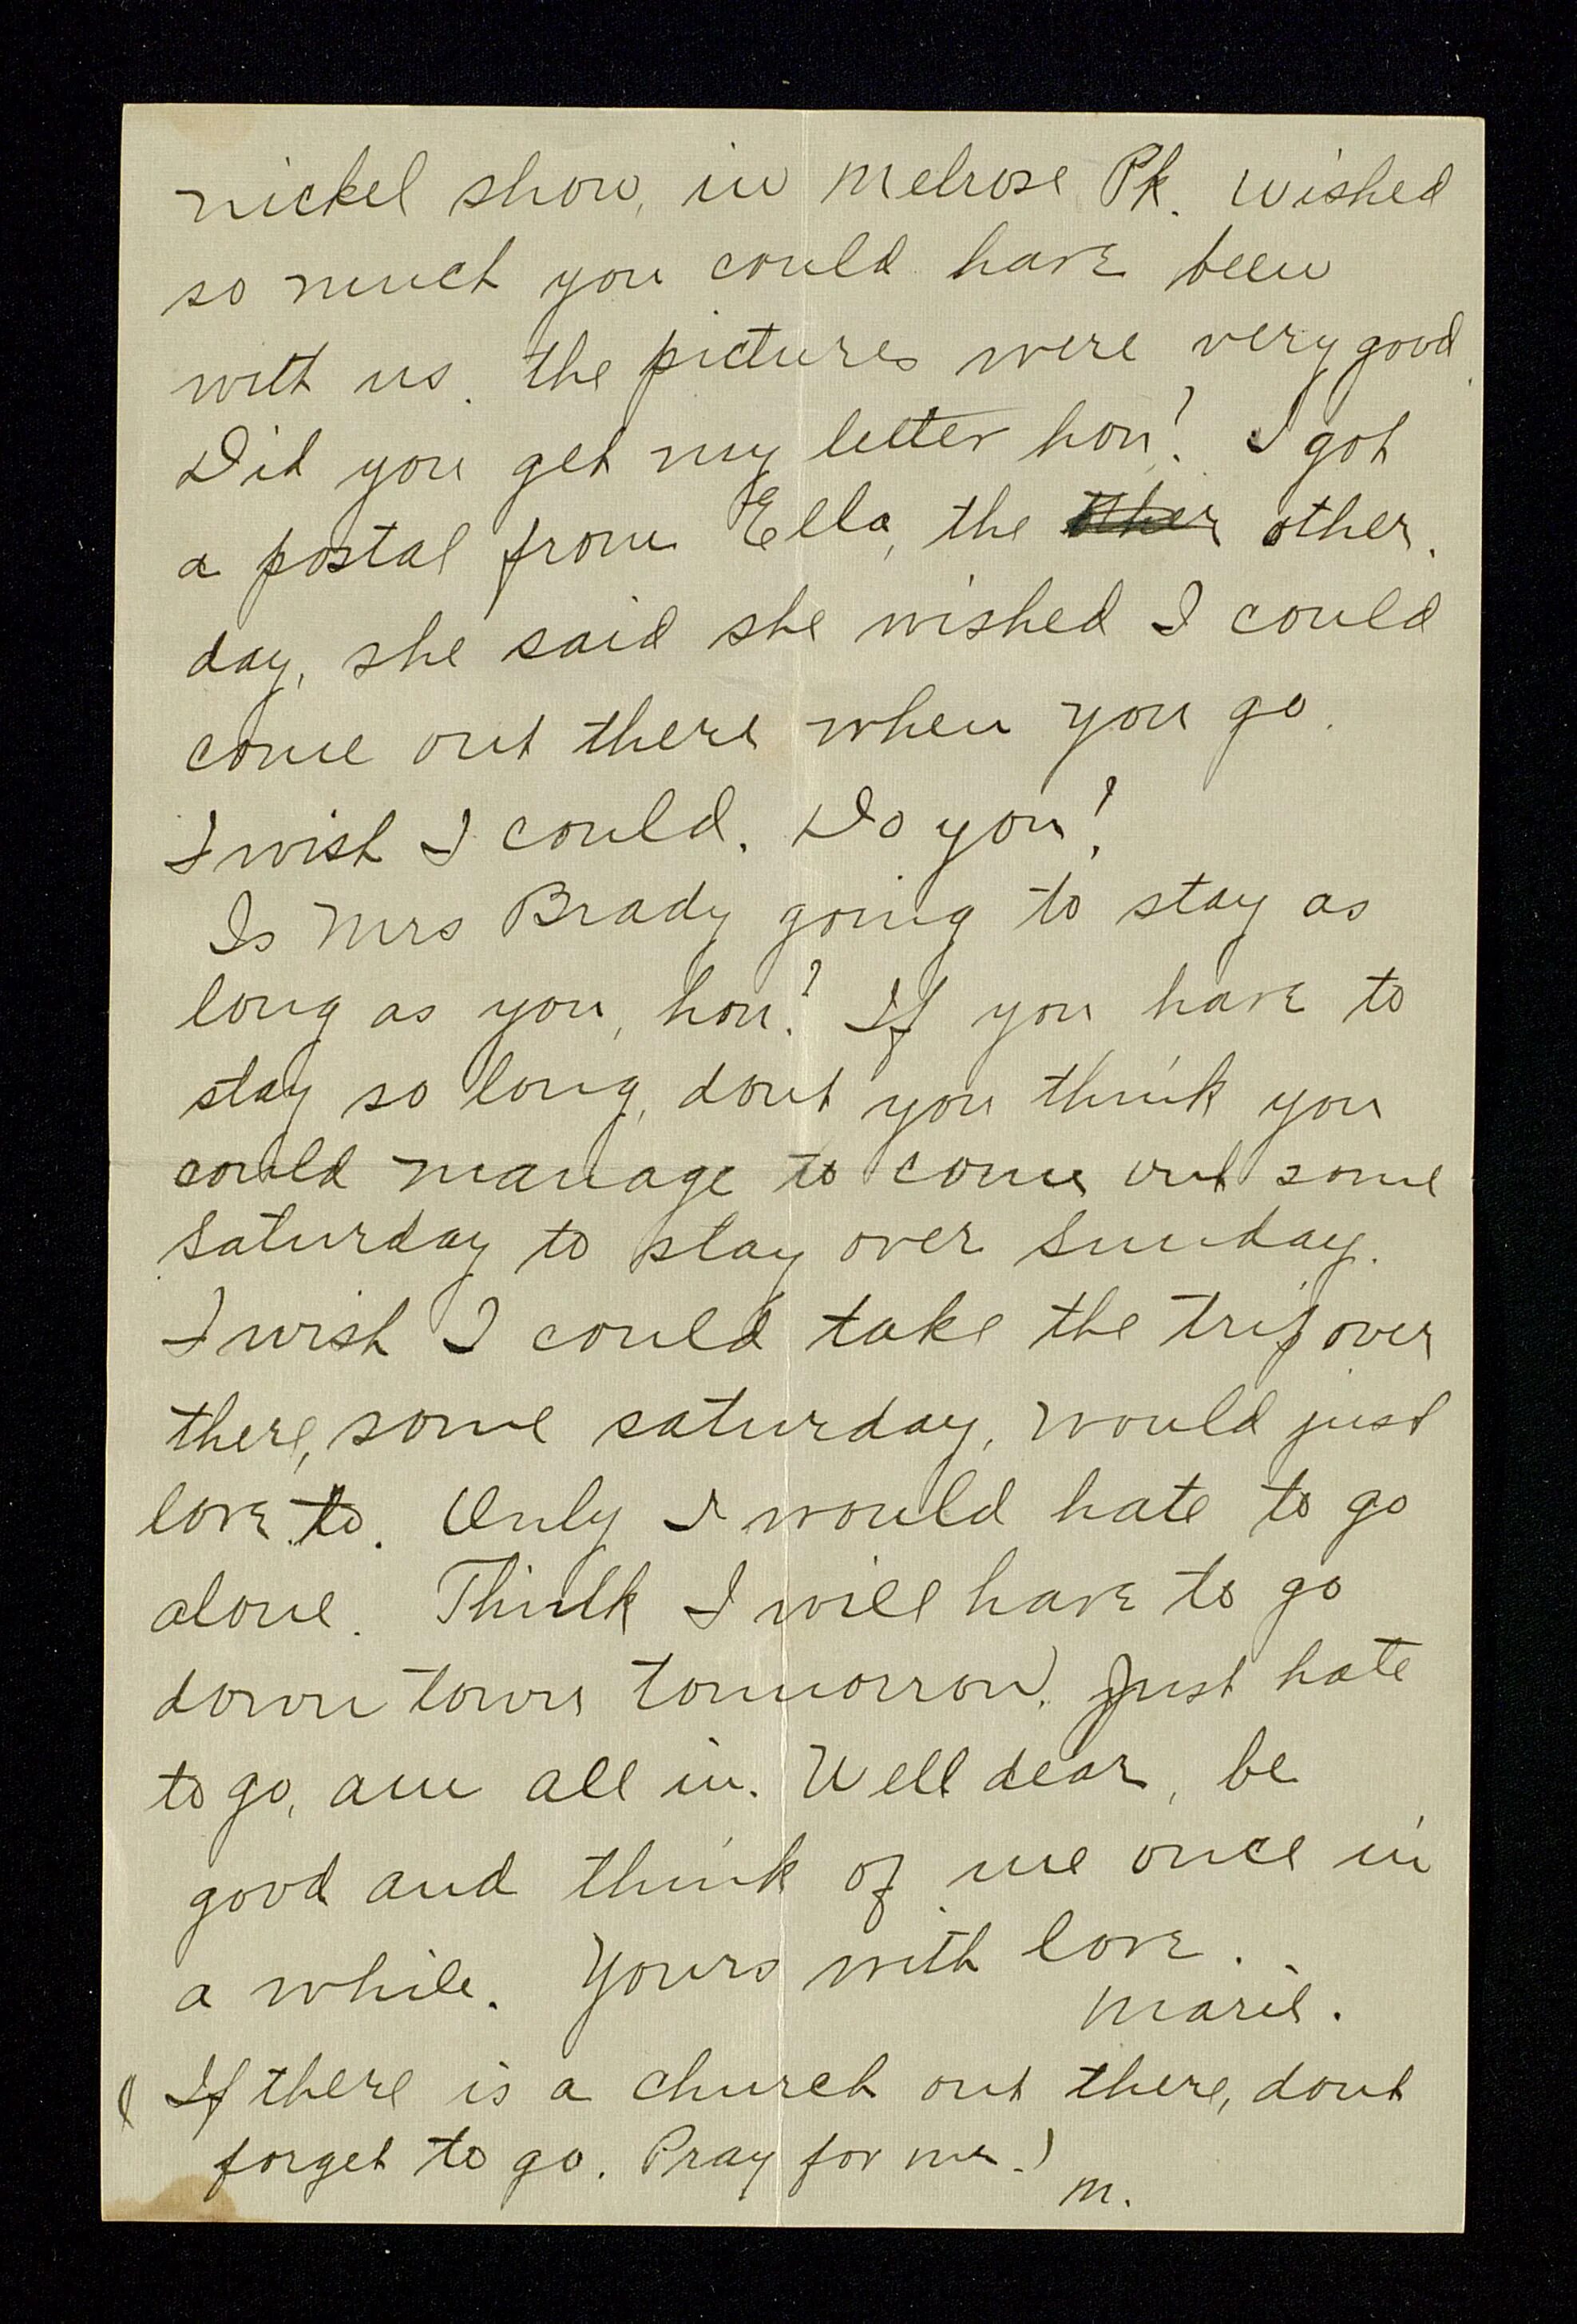 nickel show, in Melrose Pk. Wished
so much you could have been
with us. the pictures were very good.
Did you get my letter hon? I got
a postal from Ella, the other.
day, she said she wished I could
come out there when you go.
I wish I could. Do you?
Is Mrs Brady going to stay as
long as you, hon? If you have to
stay so long, dont you think you
could manage to come out some
Saturday to stay over Sunday.
I wish I could take the trip over
there, some saturday, would just
love to. Only I would hate to go
alone. Think I will have to go
down town tomorrow. Just hate
to go, am all in. Well dear, be
good and think of me once in
a while. Yours with love.
Marie.
(If there is a church out there, dont
forget to go. Pray for me.)
M.